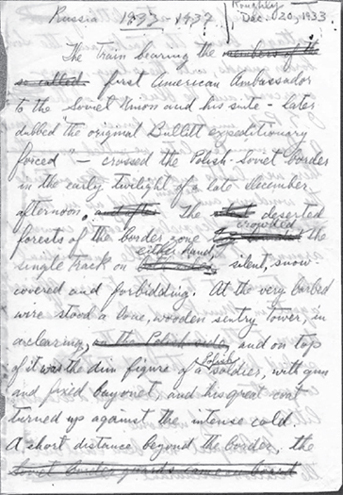 Roughly
Russia 1933-1937 Dec. 20, 1933.
The Train bearing the members of the
so called first American Ambassador
to the Soviet Union and his suite - later
dubbed "the original Bullett expeditionary
forced" - crossed the Polish-Soviet border
in the early twilight of a late December
afternoon. The deserted
forests of the border zone crowded the
single track on either hand, silent, snow
covered and forbidding. At the very barbed
wire stood a lone, wooden sentry tower, in
a clearing, and on top
of it was the dim figure of a Polish soldier, with gun
and fixed bayonet, and his great coat
turned up against the intense cold.
A short distance beyond the border, the
Soviet border guards came on board